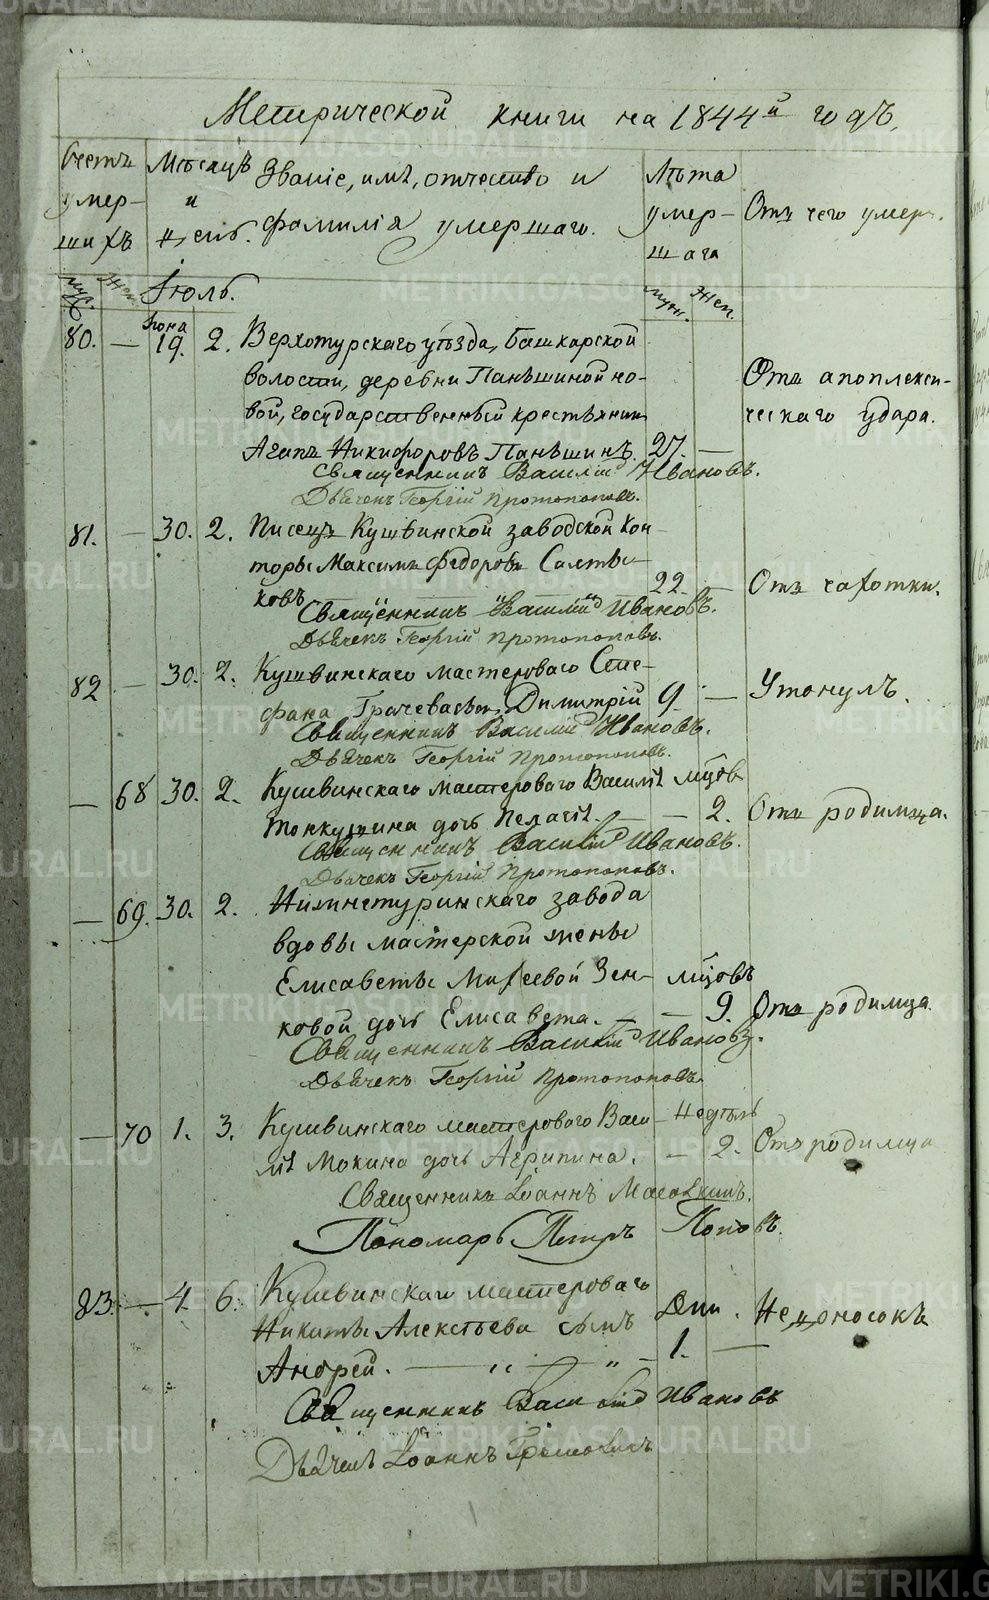 Метрической книги на 1844й годъ.
Счетъ умер- шихъ
Мѣсяцъ и день.
Званіе, имя, отчество и
фамилія умершаго.
Лѣта умер- шаго
Отъ чего умеръ.
муж. Жен. Іюль. муж. Жен.
80. — Іюня 19. 2. Верхотурскаго уѣзда, Башкарской
волости, деревни Паньшиной но- Отъ апоплекси-
вой, государственный крестьянинъ ческаго удара.
Агапъ Никифоровъ Паньшинъ. 27. —
Священникъ Василій Ивановъ.
Дьячекъ Георгій Протопоповъ.
81. — 30. 2. Писецъ Кушвинской заводской кон-
торы Максимъ Федоровъ Салты-
ковъ 22 — Отъ чахотки.
Священникъ Василій Ивановъ.
Дьячекъ Георгій Протопоповъ.
82 — 30. 2. Кушвинскаго мастероваго Сте-
фана Грачева сынъ Димитрій 9. — Утонулъ.
Священникъ Василій Ивановъ.
Дьячекъ Георгій Протопоповъ.
— 68 30. 2. Кушвинскаго мастероваго Василія мцов
дочь Пелагія. — — 2. Отъ родимца.
Священникъ Василій Ивановъ.
Дьячекъ Георгій Протопоповъ.
— 69. 30. 2. Нижнетуринскаго завода
вдовы мастерской жены
Елисаветы Михеевой Зен- мцовъ
ковой дочь Елисавета. — — 9. Отъ родимца.
Священникъ Василій Ивановъ.
Дьячекъ Георгій Протопоповъ.
— 70 1. 3. Кушвинскаго мастероваго Васи- Недѣль
лія Мокина дочь Агрипина. — 2. Отъ родимца
Священникъ Іоаннъ
Пономарь Петръ Поповъ.
83. — 4. 6. Кушвинскаго мастероваго
Никиты Алексѣева сынъ Дни. Недоносокъ
Андрей. — „ — „ — 1. —
Священникъ Василій Ивановъ
Дьячекъ Іоаннъ
METRIKI.GASO-URAL.RU